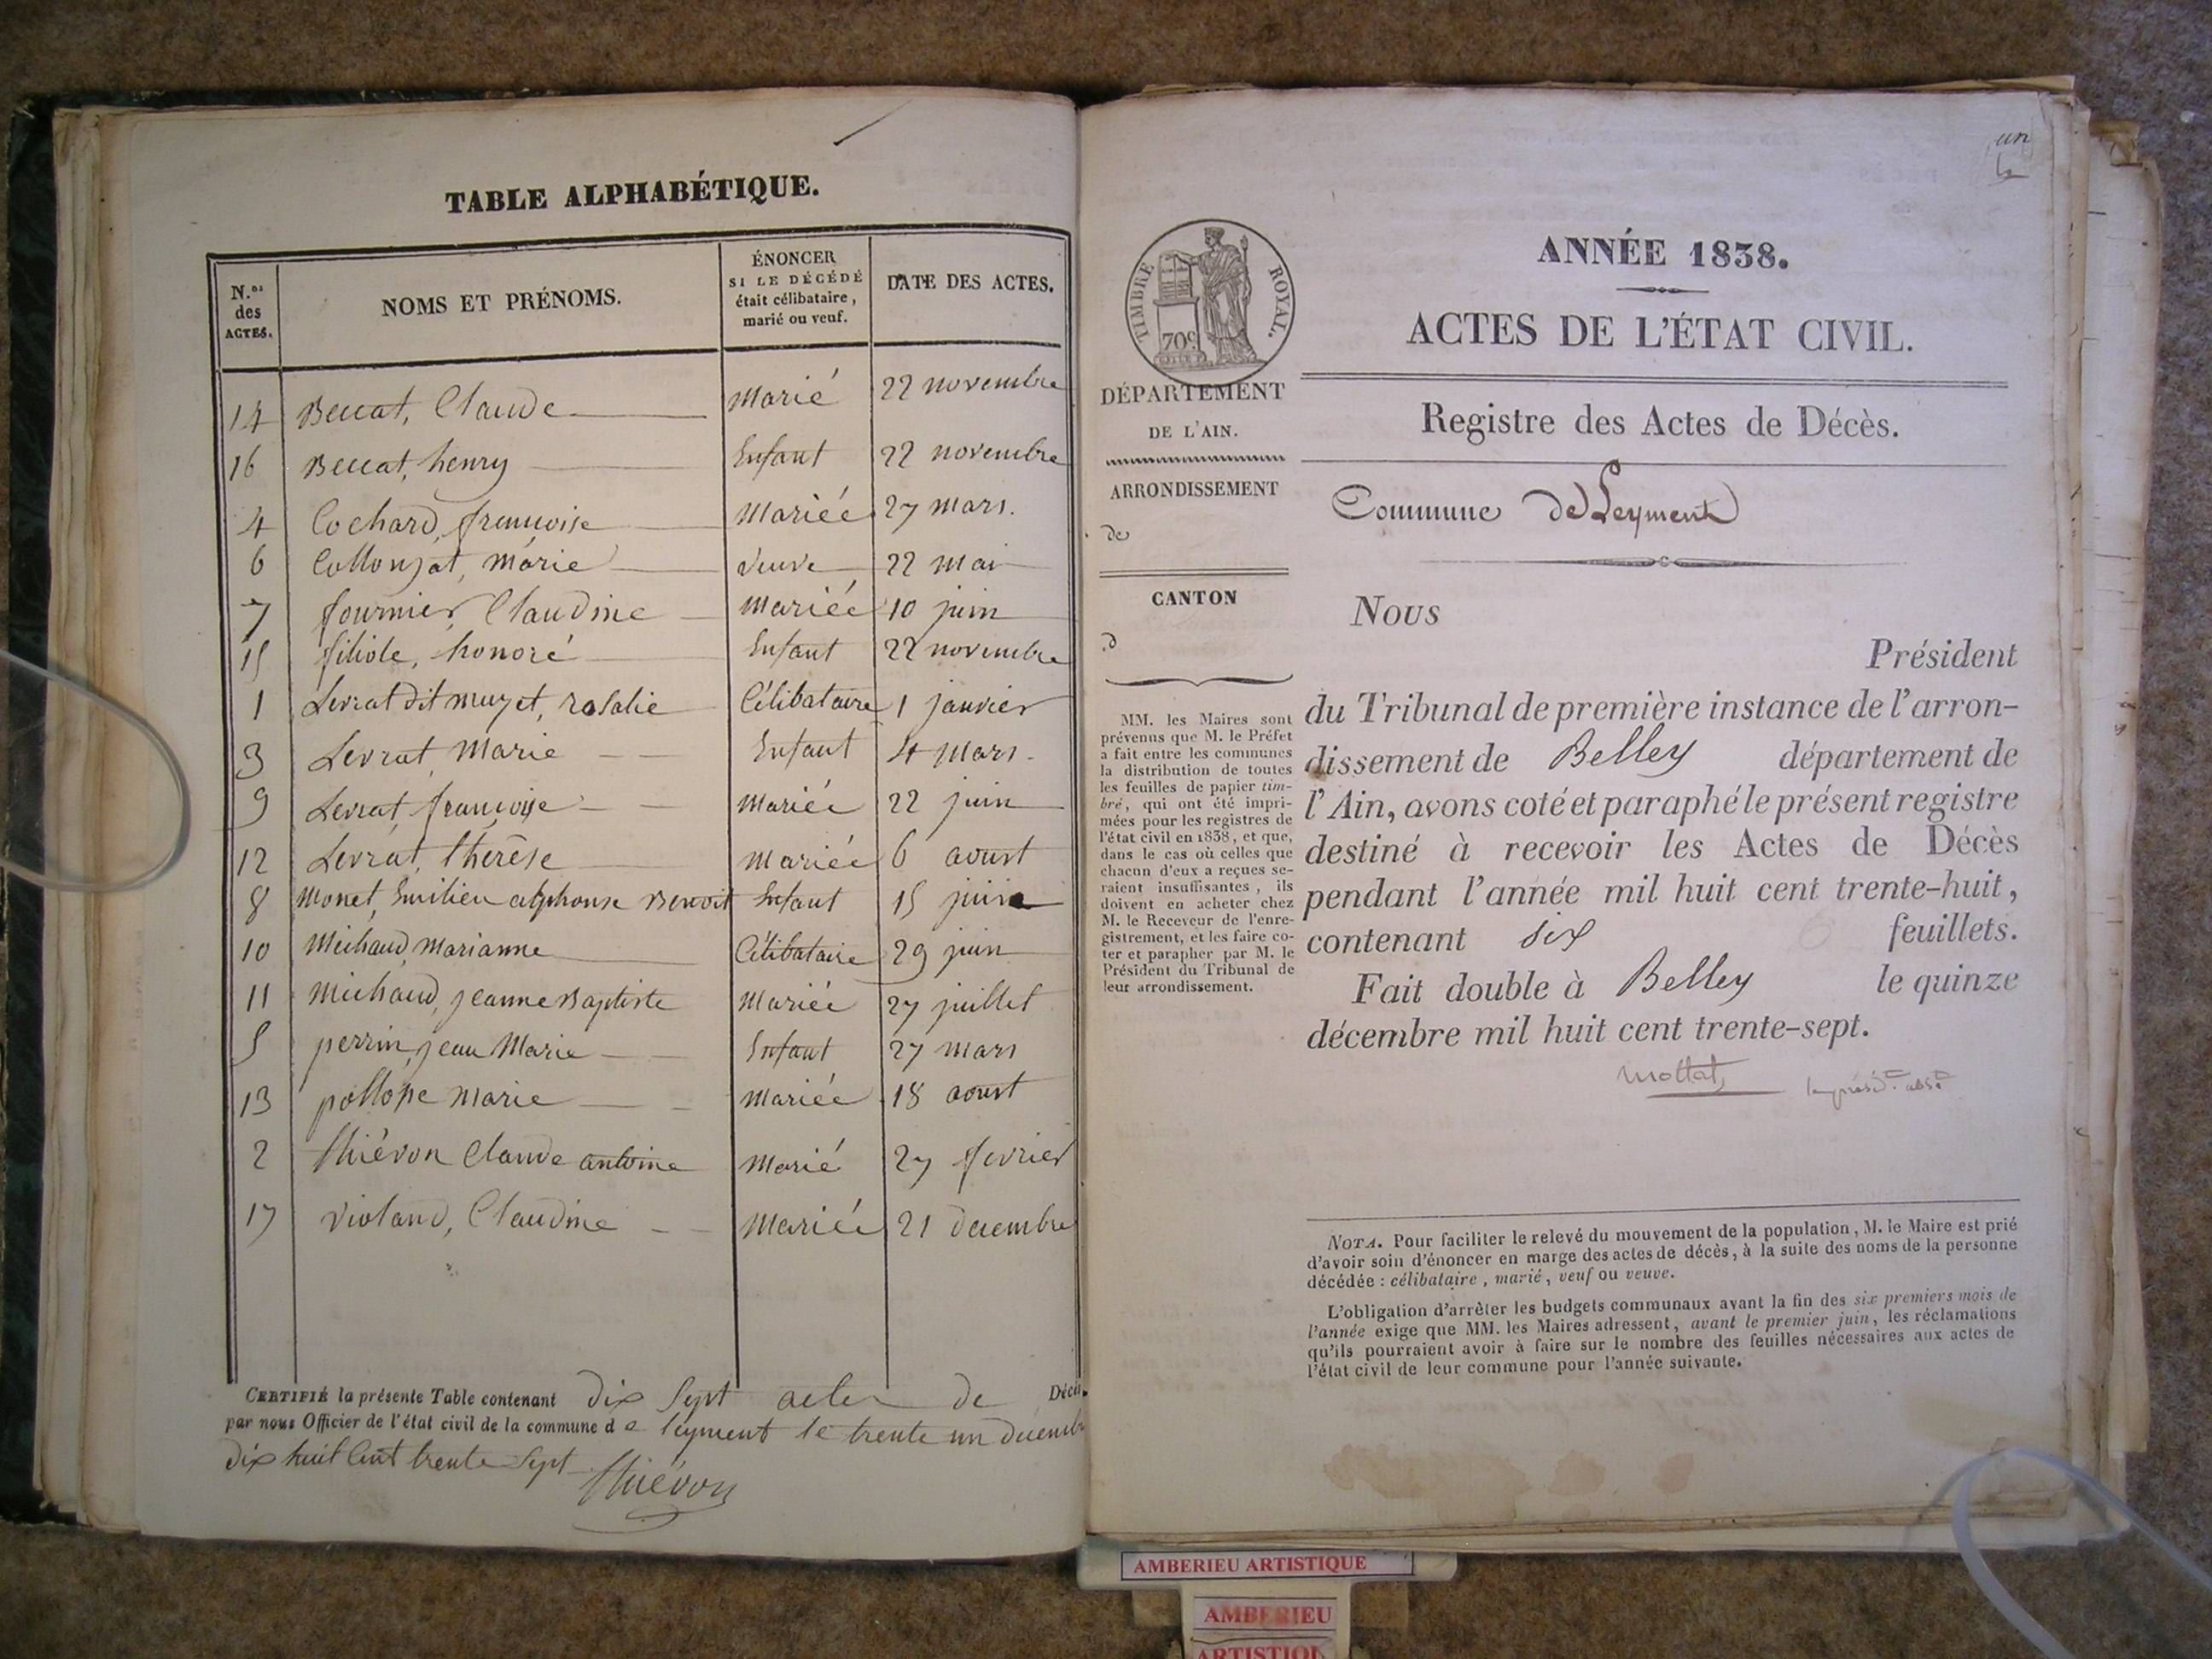 TABLE ALPHABÉTIQUE.
N.os des ACTES.
NOMS ET PRÉNOMS.
ÉNONCER
SI LE DÉCÉDÉ
était célibataire,
marié ou veuf.
DATE DES ACTES.
14 Beccat, Claude Marié 22 novembre
16 Beccat, henry Enfant 22 novembre
4 Cochard, françoise Mariée 27 mars.
6 Collonzat, marie veuve 22 mai
7 fournier, Claudine Mariée 10 juin
15 filiole, honoré Enfant 22 novembre
1 Levrat dit muzet, rosalie Célibataire 1 janvier
3 Levrat Marie Enfant 4 mars
9 Levrat, françoise Mariée 22 juin
12 Levrat, thérèse Mariée 6 aoust
8 Monet, Emilien alphonse Benoit Enfant 15 juin
10 Michaud, Marianne Célibataire 29 juin
11 Michaud, jeanne Baptiste Mariée 27 juillet
5 perrin, jean Marie Enfant 27 mars
13 pollope Marie Mariée 18 aoust
2 thiévon Claude antoine Marié 27 fevrier
17 violand, Claudine Mariée 21 decembre
CERTIFIÉ la présente Table contenant dix Sept actes de Décès.
par nous Officier de l'état civil de la commune de leyment le trente un Decembre
dix huit Cent trente Sept
thiévon
un
TIMBRE ROYAL.
70c
DÉPARTEMENT
DE L'AIN.
ARRONDISSEMENT
de
CANTON
d
MM. les Maires sont
prévenus que M. le Préfet
a fait entre les communes
la distribution de toutes
les feuilles de papier tim-
bré, qui ont été impri-
mées pour les registres de
l'état civil en 1838, et que,
dans le cas où celles que
chacun d'eux a reçues se-
raient insuffisantes, ils
doivent en acheter chez
M. le Receveur de l'enre-
gistrement, et les faire co-
ter et parapher par M. le
Président du Tribunal de
leur arrondissement.
ANNÉE 1838.
ACTES DE L'ÉTAT CIVIL.
Registre des Actes de Décès.
Commune de Leyment
Nous
Président
du Tribunal de première instance de l'arron-
dissement de Belley département de
l'Ain, avons coté et paraphé le présent registre
destiné à recevoir les Actes de Décès
pendant l'année mil huit cent trente-huit,
contenant six feuillets.
Fait double à Belley le quinze
décembre mil huit cent trente-sept.
Mottat
NOTA. Pour faciliter le relevé du mouvement de la population, M. le Maire est prié
d'avoir soin d'énoncer en marge des actes de décès, à la suite des noms de la personne
décédée : célibataire, marié, veuf ou veuve.
L'obligation d'arrêter les budgets communaux avant la fin des six premiers mois de
l'année exige que MM. les Maires adressent, avant le premier juin, les réclamations
qu'ils pourraient avoir à faire sur le nombre des feuilles nécessaires aux actes de
l'état civil de leur commune pour l'année suivante.
AMBERIEU ARTISTIQUE
AMBERIEU